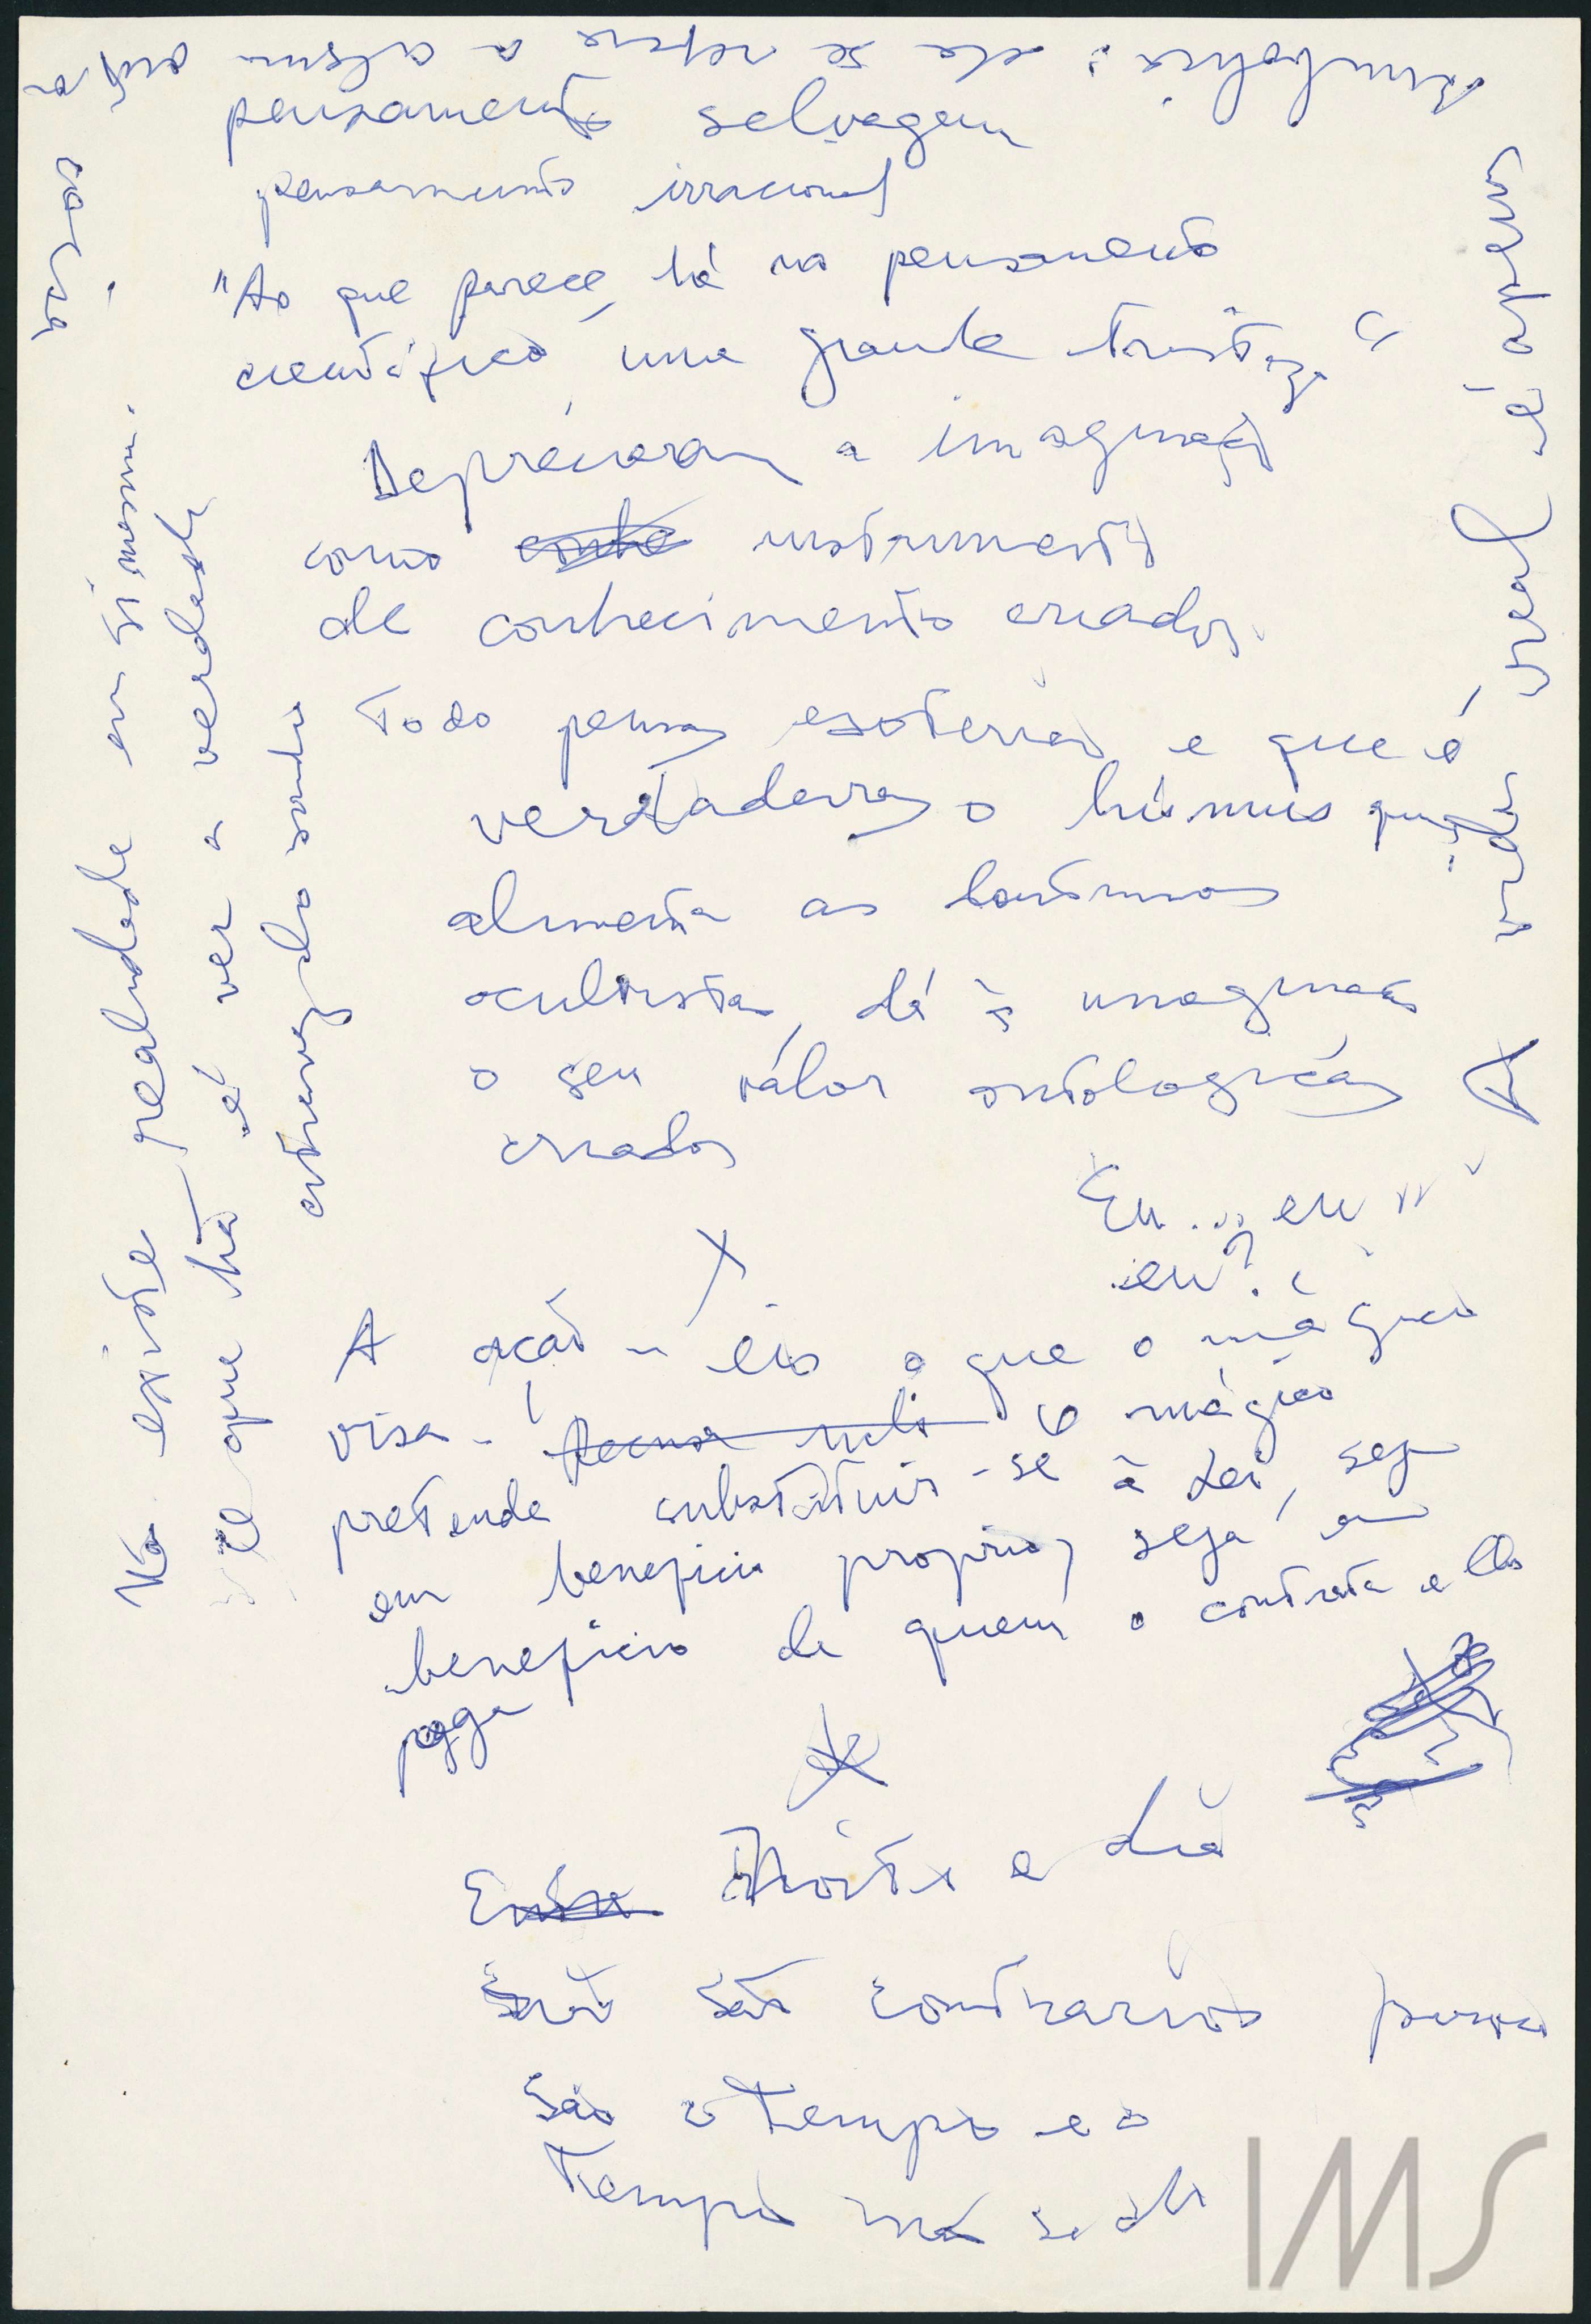 pensamento selvagem
pensamento irracional
"Ao que parece, há no pensamento
científico uma grande tristeza"
Depreciaram a imaginação
como instrumento
de conhecimento criador.
Todo pensar esoterico e que é
verdadeiro, o húmus que
alimenta as doutrinas
ocultistas, dá à imaginação
o seu valor ontologico
criador
Eu... eu
eu?
X
A ação – eis o que o mágico
visa – O mágico
pretende substituir-se à Lei, seja
em beneficio proprio, seja em
beneficio de quem o contrata e lhe
paga
Entre Noite e dia
não são contrarios porque
são o tempo e o
Tempo não se
A vida real é apenas
simbolica: ela se refere a alguma outra
coisa.
Não existe realidade em si mesma.
O que há é ver a verdade
através do sonho
IMS